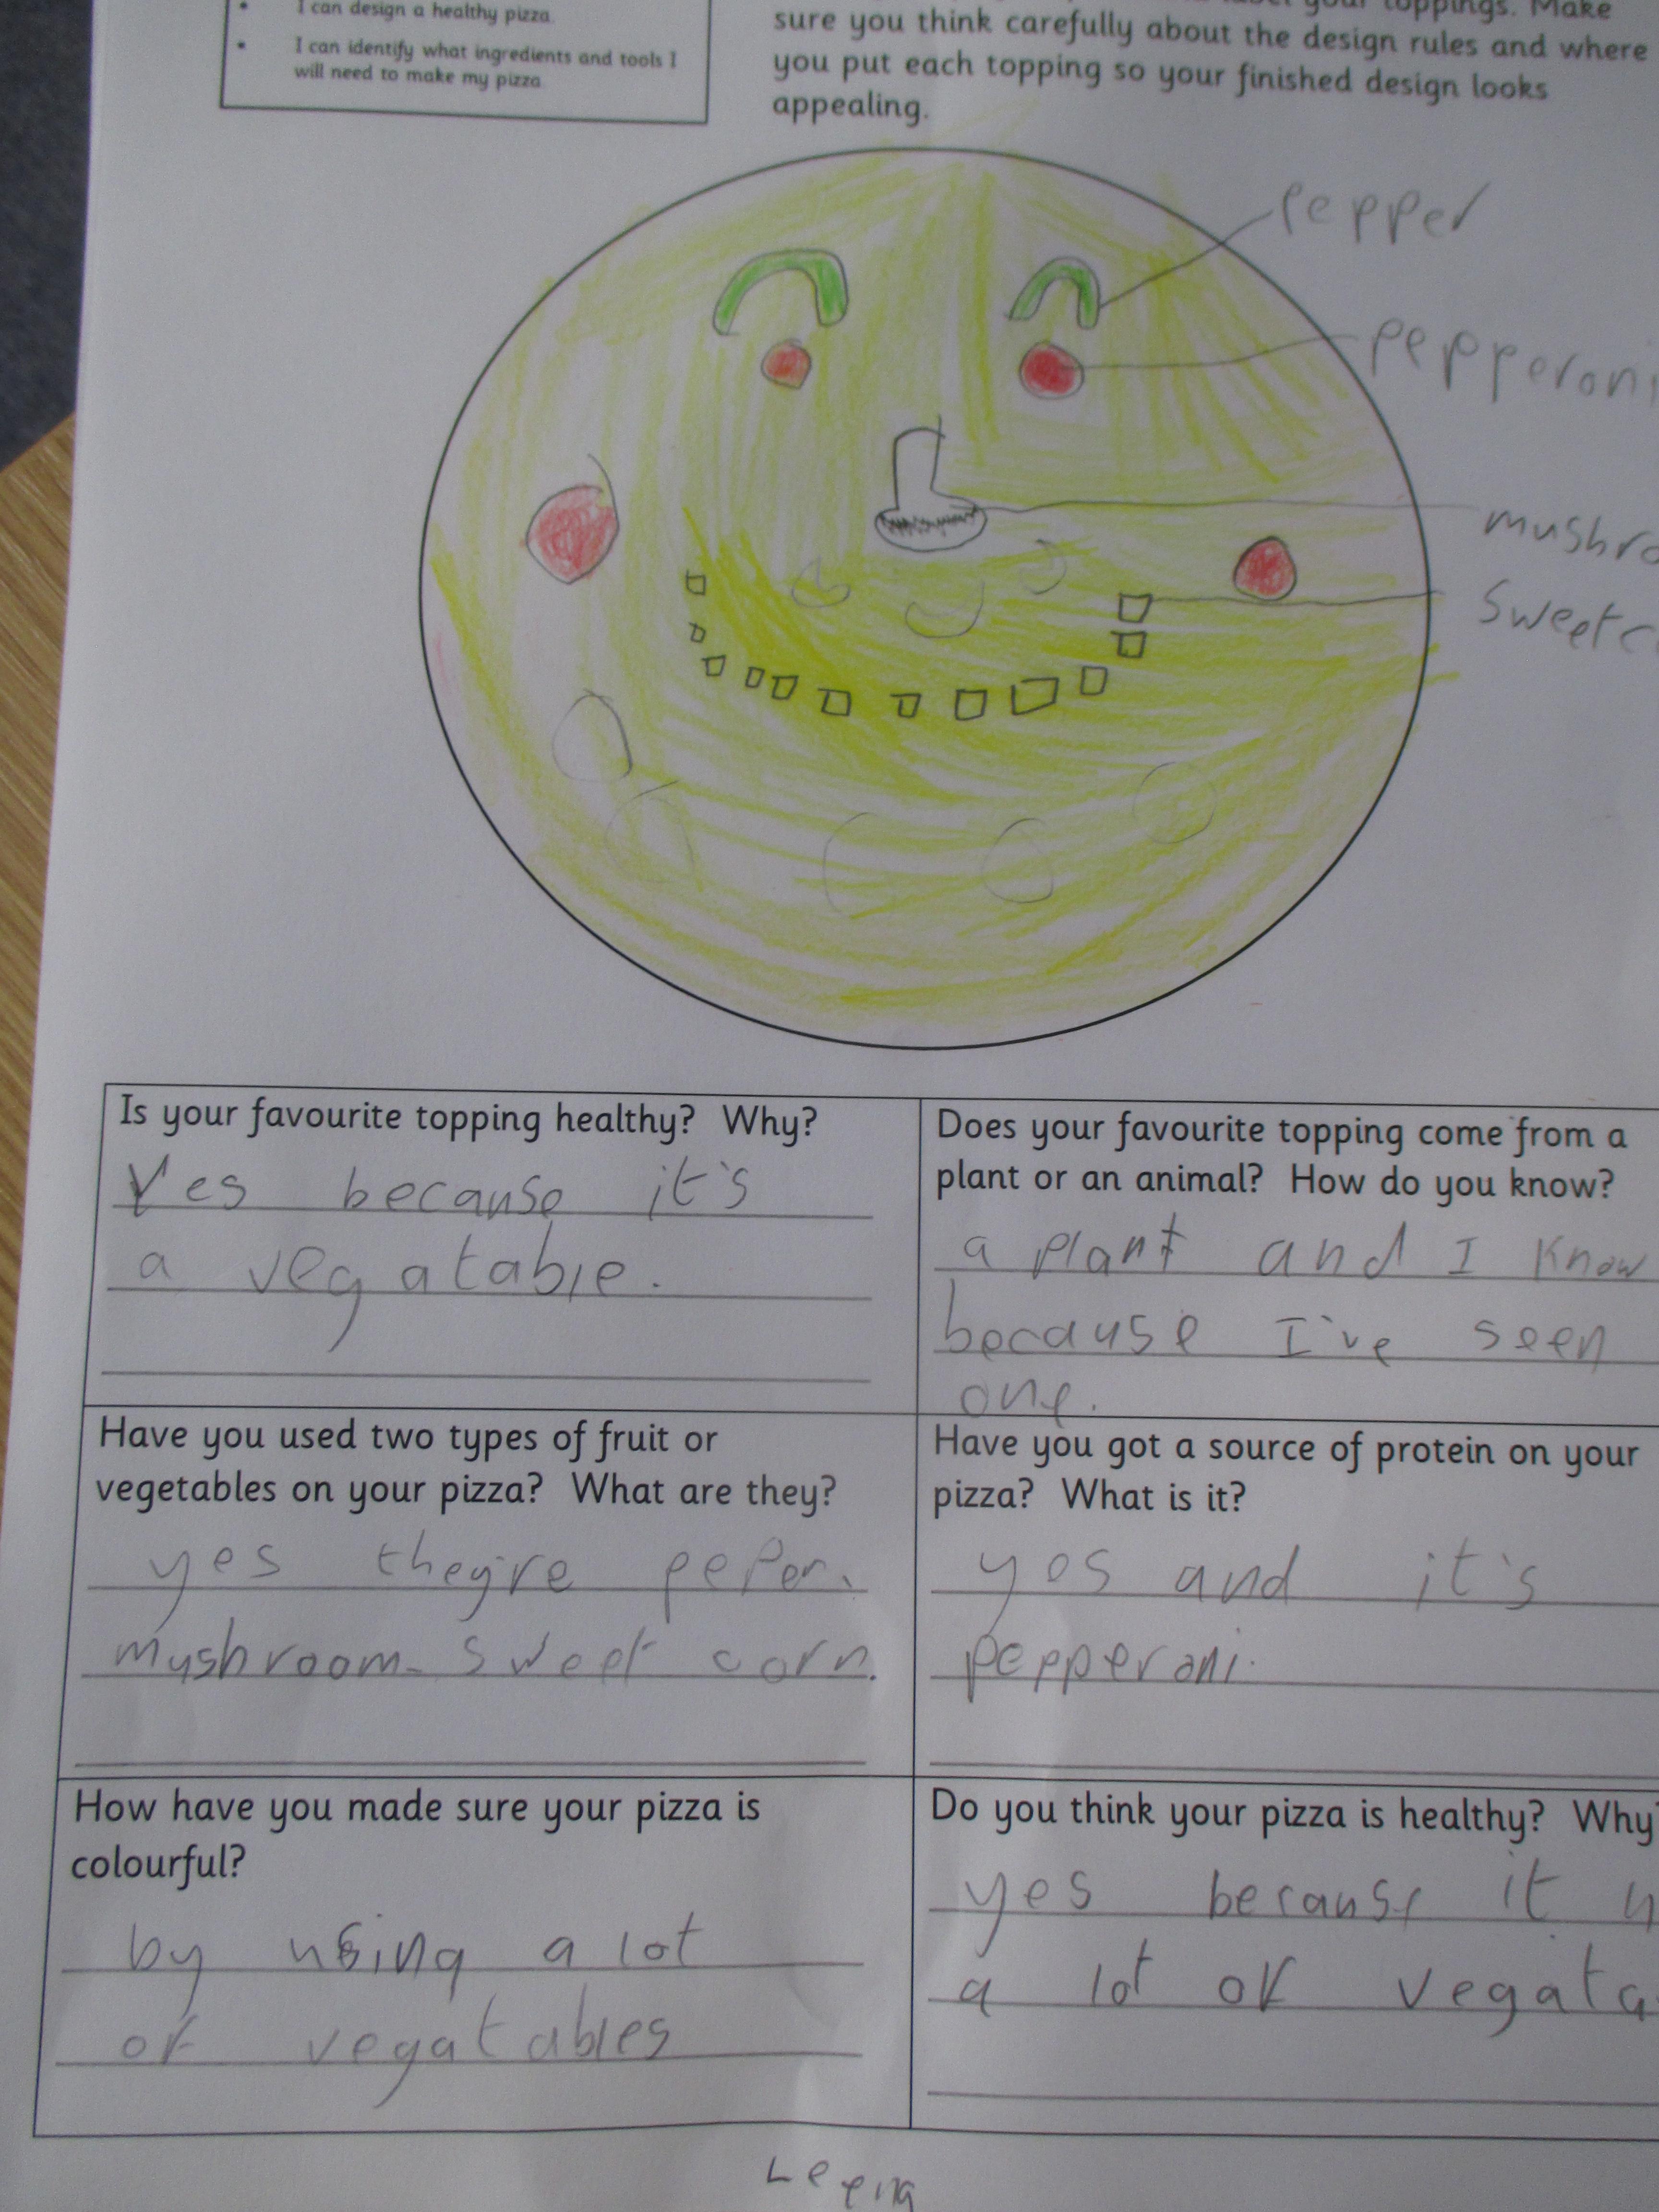 I can design a healthy pizza.
I can identify what ingredients and tools I
will need to make my pizza.
your toppings. Make
sure you think carefully about the design rules and where
you put each topping so your finished design looks
appealing.
pepper
pepperoni
mushro
sweetc
Is your favourite topping healthy? Why?
Yes because it's
a vegatable.
Does your favourite topping come from a
plant or an animal? How do you know?
a plant and I know
because I've seen
one.
Have you used two types of fruit or
vegetables on your pizza? What are they?
yes they're peper.
mushroom. sweet corn.
Have you got a source of protein on your
pizza? What is it?
yes and it's
pepperoni.
How have you made sure your pizza is
colourful?
by using a lot
of vegatables
Do you think your pizza is healthy? Why?
yes because it
a lot of vegata